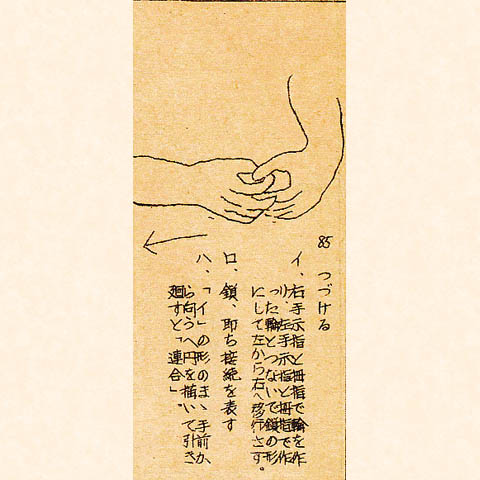 85 つづける
イ、右手示指と拇指で輪を作
り、左手示指と拇指で作
った輪とつないで鎖の形
にして左から右へ移行さす。
ロ、鎖、即ち接続を表す
ハ、「イ」の形のまゝ手前か
ら向うへ円を描いて引き
廻すと「連合」。